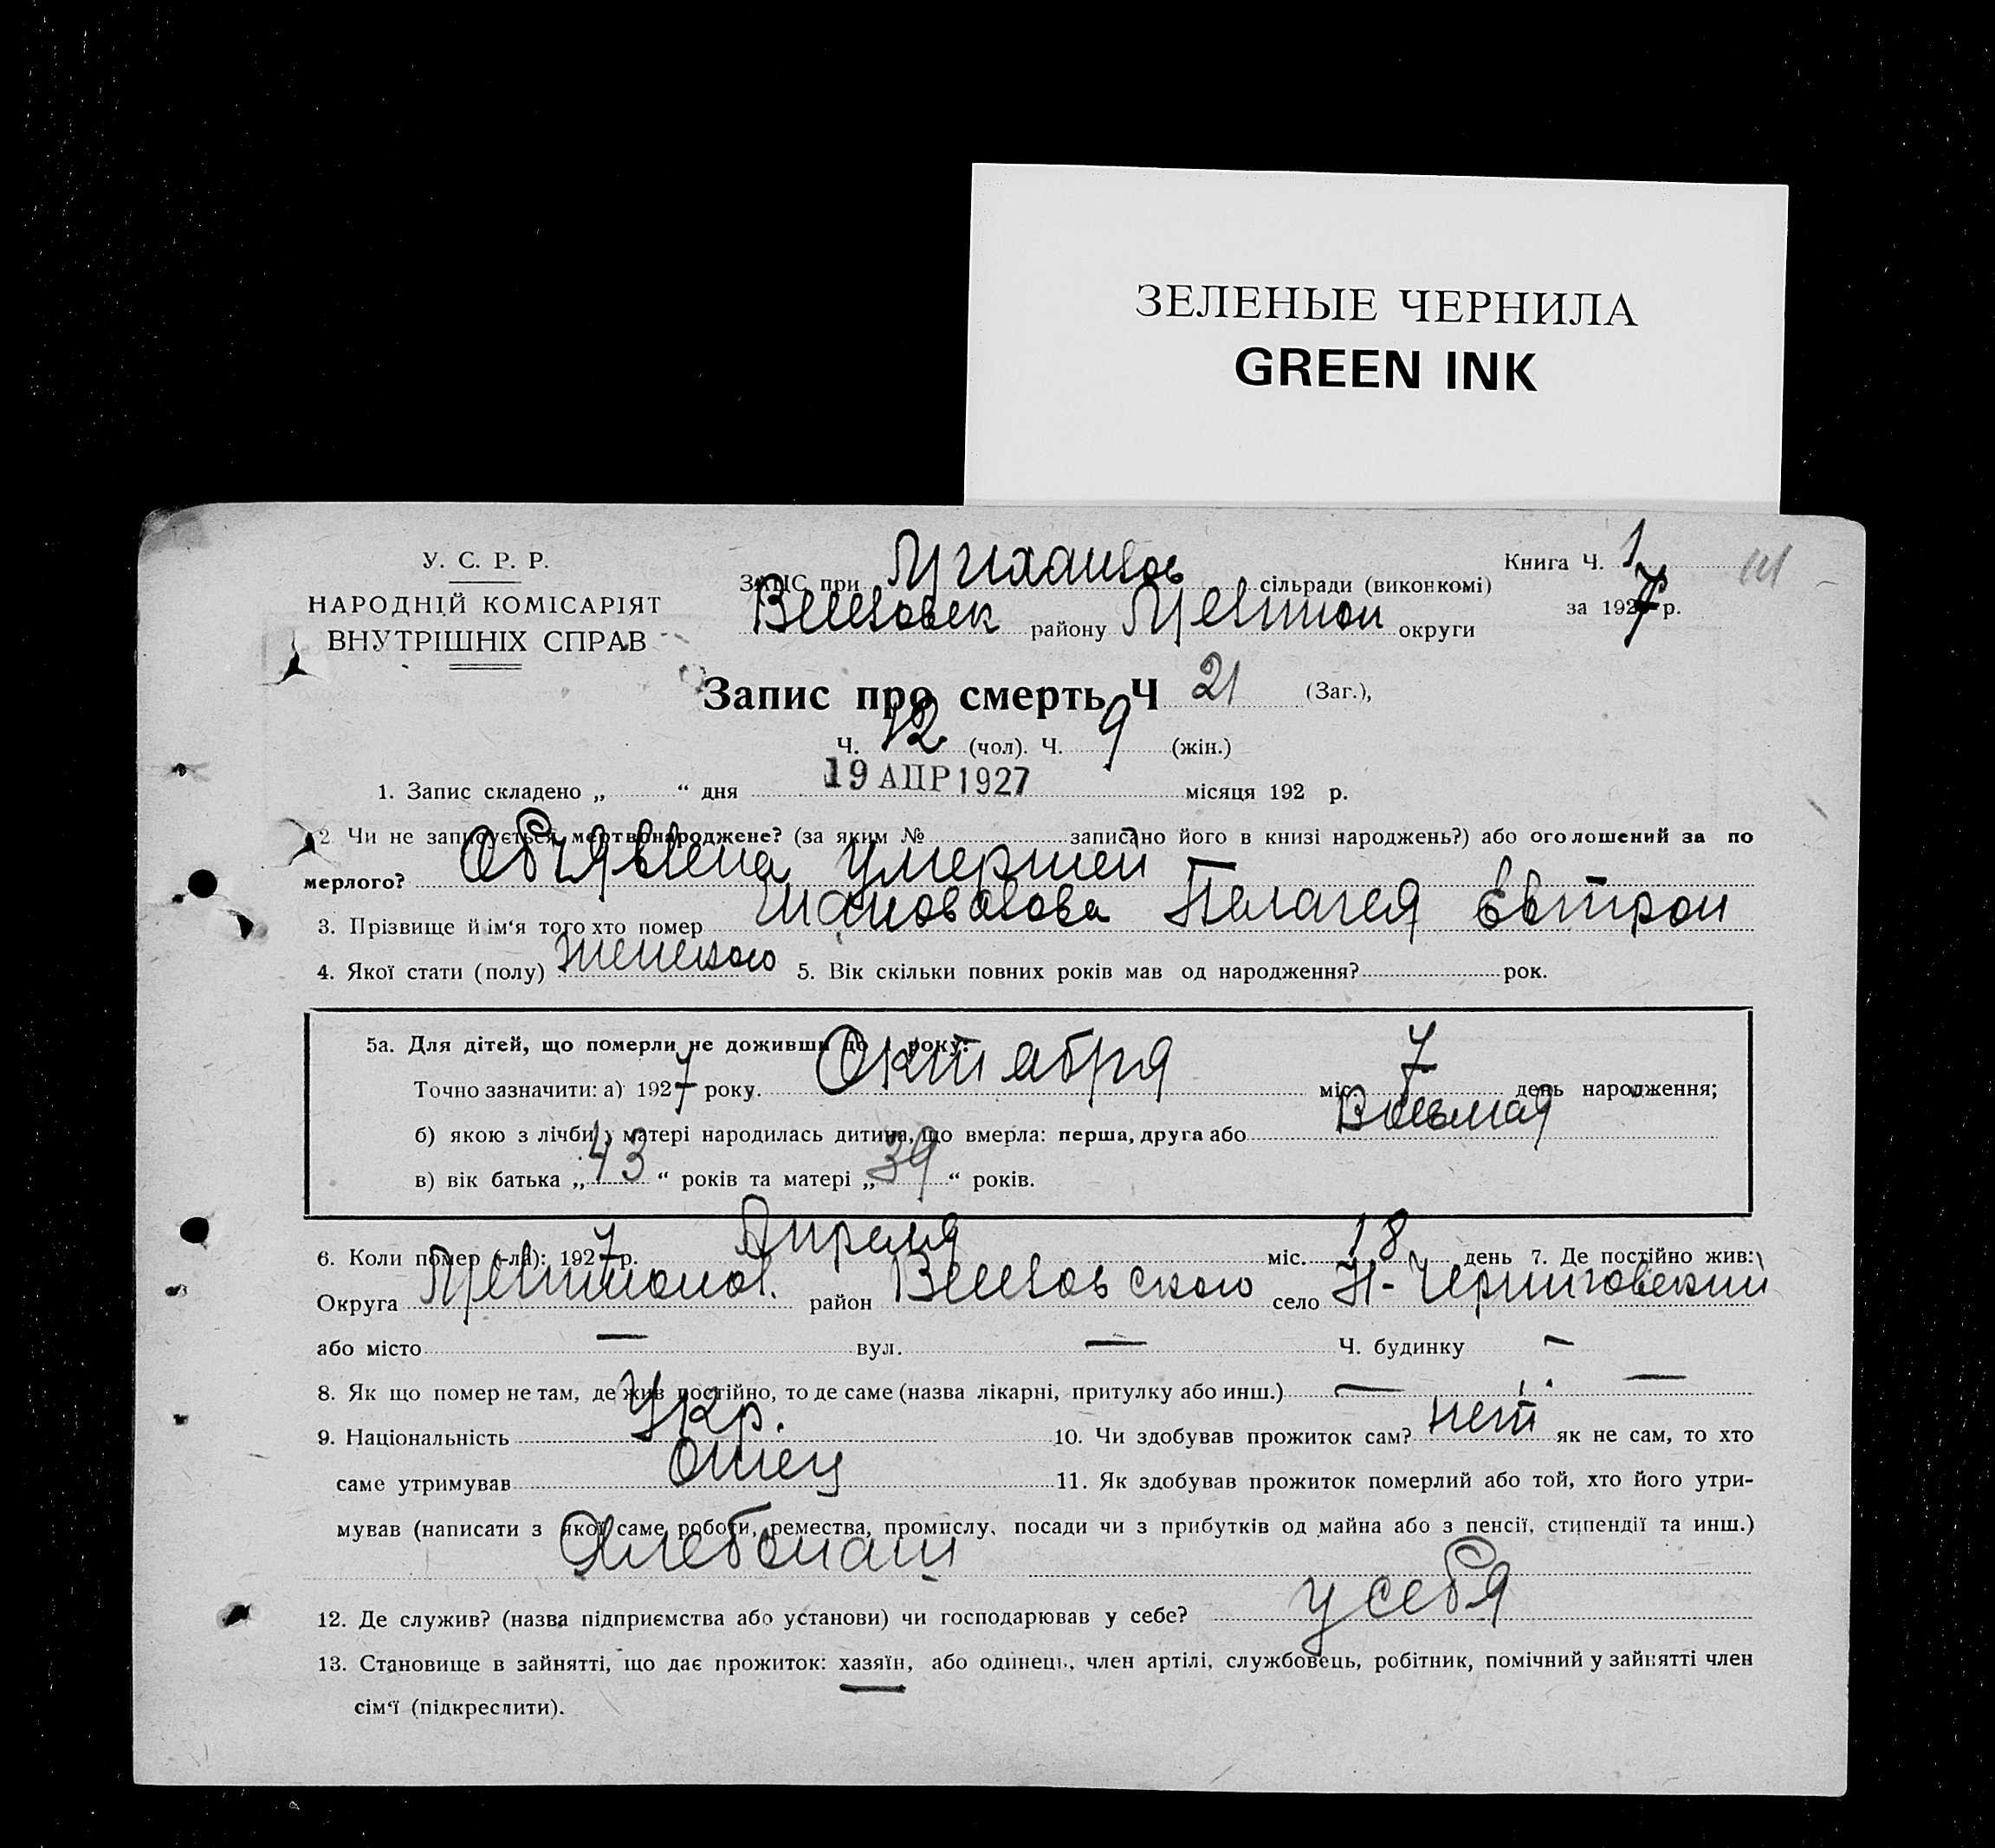 ЗЕЛЕНЫЕ ЧЕРНИЛА
GREEN INK
У. С. Р. Р.
НАРОДНІЙ КОМІСАРІЯТ
ВНУТРІШНІХ СПРАВ
ЗАГС при Михайлов сільради (виконкомі)
Веселовск району Мелитоп округи
Книга Ч. 1
за 1927 р.
Запис про смерть Ч 21 (Заг.),
Ч. 12 (чол). Ч. 9 (жін.)
1. Запис складено „ “ дня 19 АПР 1927 місяця 192 р.
2. Чи не записується мертвонароджене? (за яким № записано його в книзі народжень?) або оголошений за по
мерлого? Объявлена умершей
3. Прізвище й ім‘я того хто помер Шаповалова Пелагея Евтроп
4. Якої стати (полу) женского 5. Вік скільки повних років мав од народження? рок.
5а. Для дітей, що померли не доживши до 1 року:
Точно зазначити: а) 1927 року. Октября міс. 7 день народження;
б) якою з лічби у матері народилась дитина, що вмерла: перша, друга або Восьмая
в) вік батька „43“ років та матері „39“ років.
6. Коли помер (-ла): 1927 р. Апреля міс. 18 день 7. Де постійно жив:
Округа Мелитопол. район Веселовского село Н-Черниговский
або місто — вул. — Ч. будинку —
8. Як що помер не там, де жив постійно, то де саме (назва лікарні, притулку або инш.) — —
9. Національність Укр. 10. Чи здобував прожиток сам? нет як не сам, то хто
саме утримував отец 11. Як здобував прожиток померлий або той, хто його утри-
мував (написати з якої саме роботи, ремества, промислу, посади чи з прибутків од майна або з пенсії, стипендії та инш.)
Хлебопаш
12. Де служив? (назва підприємства або установи) чи господарював у себе? у себя
13. Становище в зайнятті, що дає прожиток: хазяїн, або одинець, член артілі, службовець, робітник, помічний у зайнятті член
сім‘ї (підкреслити).